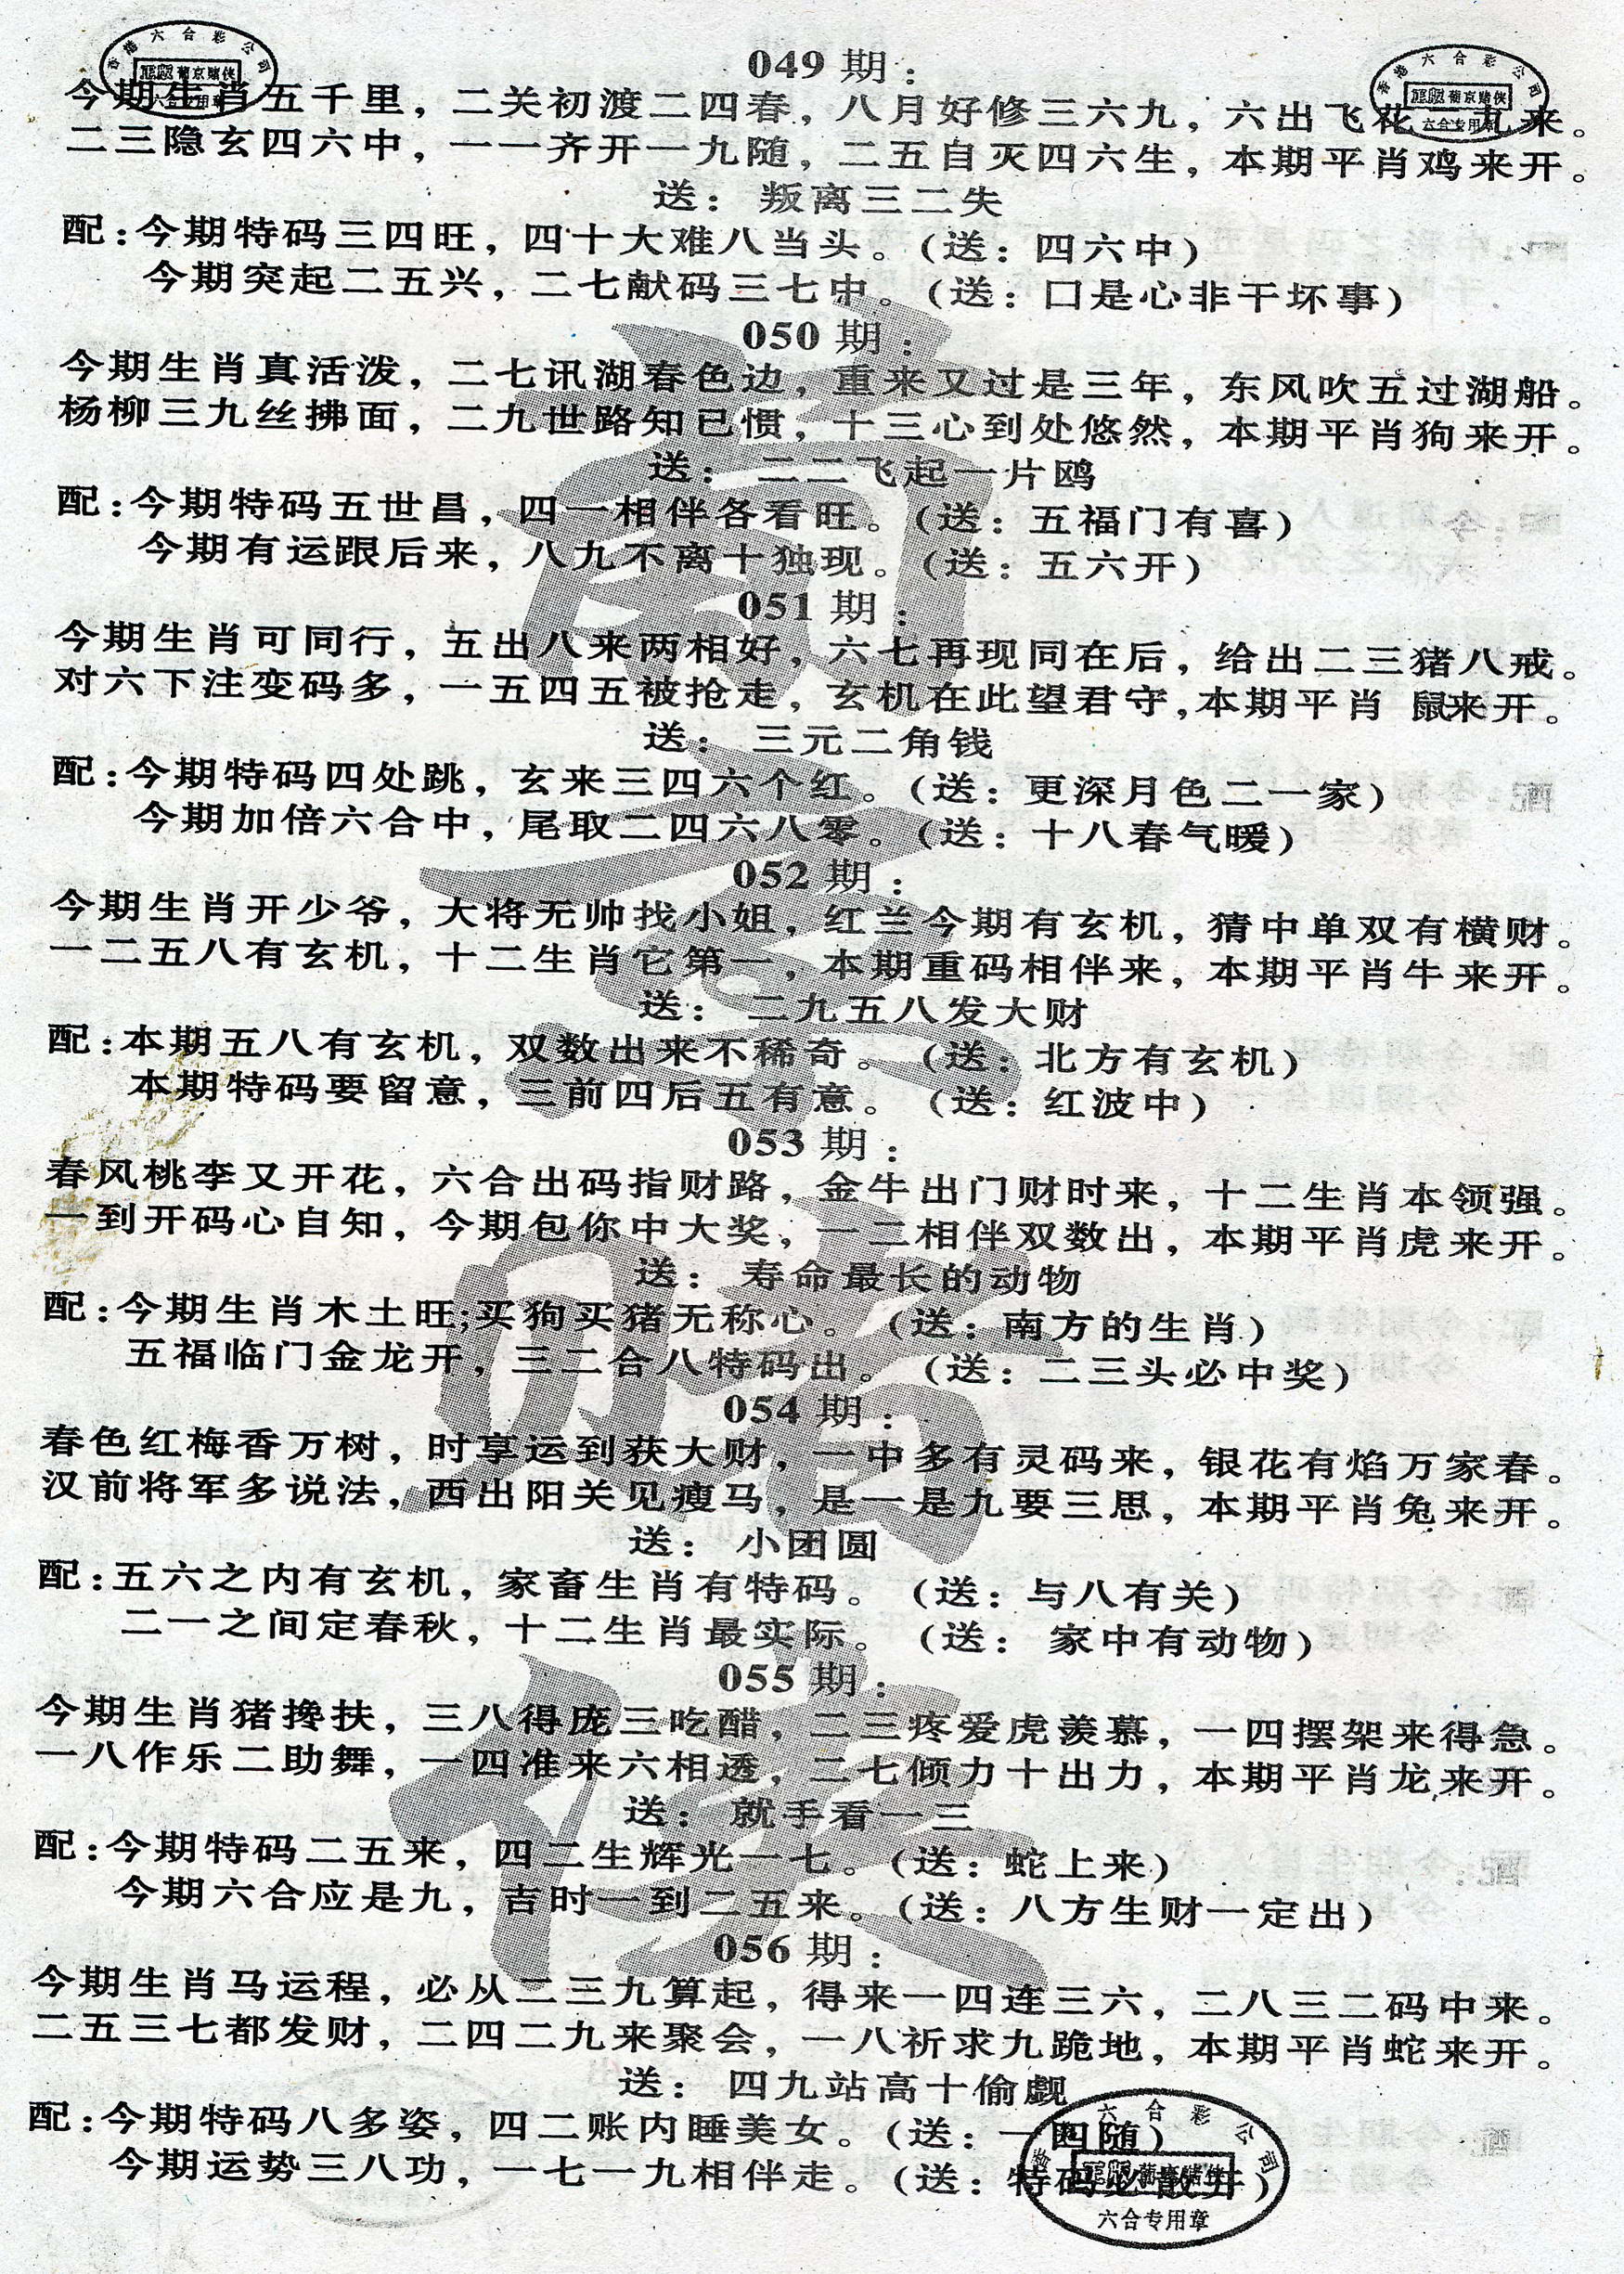 香港六合彩公司
正版葡京赌侠
六合专用章
香港六合彩公司
正版葡京赌侠
六合专用章
049期：
今期生肖五千里，二关初渡二四春，八月好修三六九，六出飞花一九来。
二三隐玄四六中，一一齐开一九随，二五自灭四六生，本期平肖鸡来开。
送：叛离三二失
配：今期特码三四旺，四十大难八当头。（送：四六中）
今期突起二五兴，二七献码三七中。（送：口是心非干坏事）
050期：
今期生肖真活泼，二七讯湖春色边，重来又过是三年，东风吹五过湖船。
杨柳三九丝拂面，二九世路知已惯，十三心到处悠然，本期平肖狗来开。
送：二二飞起一片鸥
配：今期特码五世昌，四一相伴各看旺。（送：五福门有喜）
今期有运跟后来，八九不离十独现。（送：五六开）
051期：
今期生肖可同行，五出八来两相好，六七再现同在后，给出二三猪八戒。
对六下注变码多，一五四五被抢走，玄机在此望君守，本期平肖 鼠来开。
送：三元二角钱
配：今期特码四处跳，玄来三四六个红。（送：更深月色二一家）
今期加倍六合中，尾取二四六八零。（送：十八春气暖）
052期：
今期生肖开少爷，大将无帅找小姐，红兰今期有玄机，猜中单双有横财。
一二五八有玄机，十二生肖它第一，本期重码相伴来，本期平肖牛来开。
送：二九五八发大财
配：本期五八有玄机，双数出来不稀奇。（送：北方有玄机）
本期特码要留意，三前四后五有意。（送：红波中）
053期：
春风桃李又开花，六合出码指财路，金牛出门财时来，十二生肖本领强。
一到开码心自知，今期包你中大奖，一二相伴双数出，本期平肖虎来开。
送：寿命最长的动物
配：今期生肖木土旺；买狗买猪无称心。（送：南方的生肖）
五福临门金龙开，三二合八特码出。（送：二三头必中奖）
054期：
春色红梅香万树，时享运到获大财，一中多有灵码来，银花有焰万家春。
汉前将军多说法，西出阳关见瘦马，是一是九要三思，本期平肖兔来开。
送：小团圆
配：五六之内有玄机，家畜生肖有特码。（送：与八有关）
二一之间定春秋，十二生肖最实际。（送：家中有动物）
055期：
今期生肖猪搀扶，三八得庞三吃醋，二三疼爱虎羡慕，一四摆架来得急。
一八作乐二助舞，一四准来六相透，二七倾力十出力，本期平肖龙来开。
送：就手看一三
配：今期特码二五来，四二生辉光一七。（送：蛇上来）
今期六合应是九，吉时一到二五来。（送：八方生财一定出）
056期：
今期生肖马运程，必从二三九算起，得来一四连三六，二八三二码中来。
二五三七都发财，二四二九来聚会，一八祈求九跪地，本期平肖蛇来开。
送：四九站高十偷觑
配：今期特码八多姿，四二账内睡美女。（送：一四随）
今期运势三八功，一七一九相伴走。（送：特码必散开）
香港六合彩公司
正版葡京赌侠
六合专用章